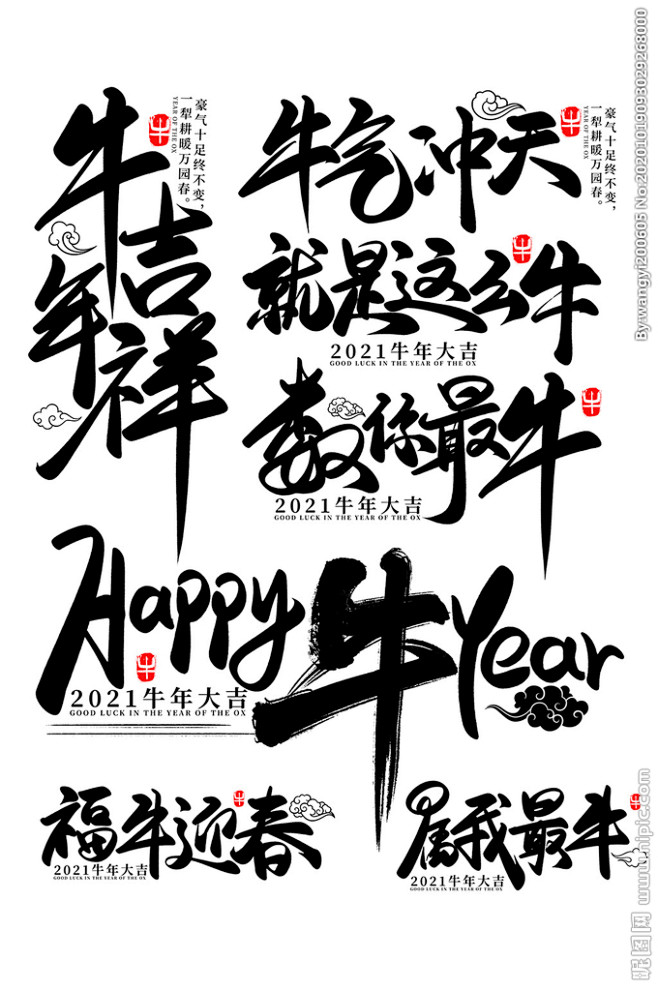 牛年吉祥
牛
豪气十足终不变，
一犁耕暖万园春。
YEAR OF THE OX
牛气冲天
牛
豪气十足终不变，
一犁耕暖万园春。
YEAR OF THE OX
就是这么牛
牛
2021牛年大吉
GOOD LUCK IN THE YEAR OF THE OX
数你最牛
牛
2021牛年大吉
GOOD LUCK IN THE YEAR OF THE OX
Happy 牛 Year
牛
2021牛年大吉
GOOD LUCK IN THE YEAR OF THE OX
福牛迎春
牛
2021牛年大吉
GOOD LUCK IN THE YEAR OF THE OX
属我最牛
牛
2021牛年大吉
GOOD LUCK IN THE YEAR OF THE OX
By:wangyi200605 No:20201019093029268000
昵图网 www.nipic.com